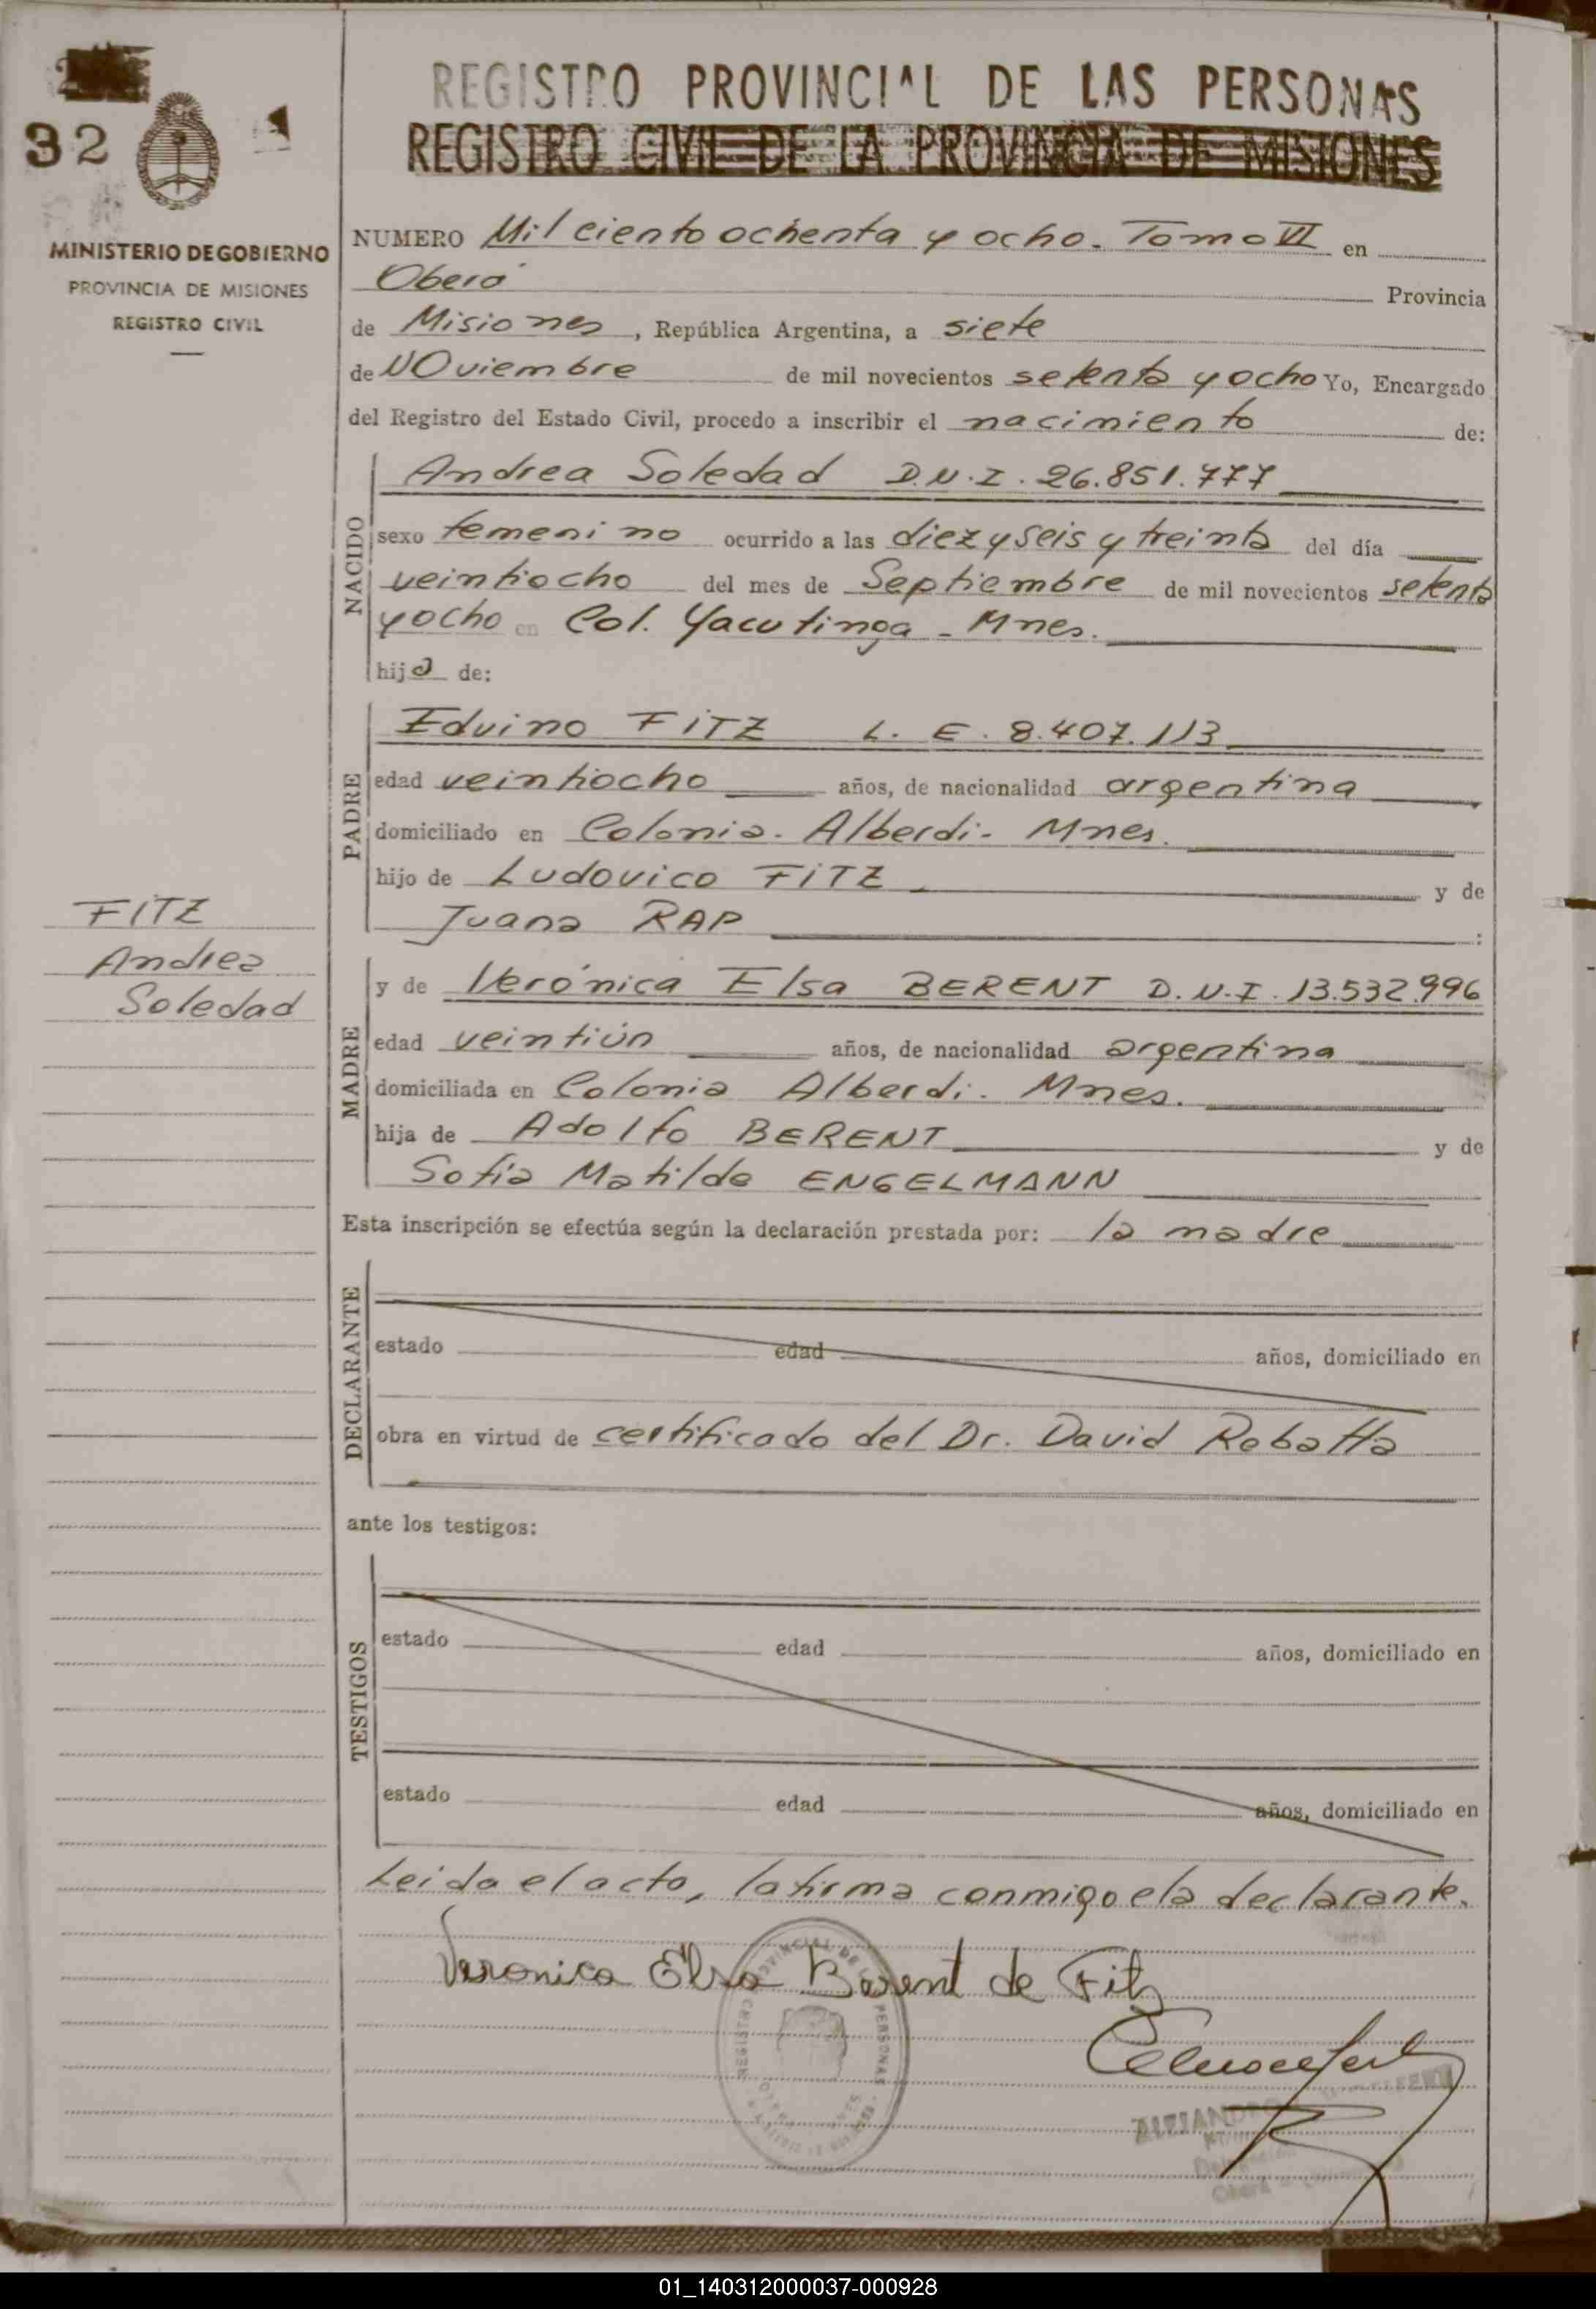 32
MINISTERIO DE GOBIERNO
PROVINCIA DE MISIONES
REGISTRO CIVIL
FITZ
Andrea
Soledad
REGISTRO PROVINCIAL DE LAS PERSONAS
REGISTRO CIVIL DE LA PROVINCIA DE MISIONES
NUMERO Mil ciento ochenta y ocho. Tomo VI en
Oberá Provincia
de Misiones, República Argentina, a siete
de NOviembre de mil novecientos setenta y ocho Yo, Encargado
del Registro del Estado Civil, procedo a inscribir el nacimiento de:
NACIDO
Andrea Soledad D.N.I. 26.851.777
sexo femenino ocurrido a las diez y seis y treinta del día
veintiocho del mes de Septiembre de mil novecientos setenta
y ocho en Col. Yacutinga - Mnes.
hija de:
PADRE
Eduino FITZ L. E. 8.407.113
edad veintiocho años, de nacionalidad argentina
domiciliado en Colonia. Alberdi- Mnes.
hijo de Ludovico FITZ y de
Juana RAP :
MADRE
y de Verónica Elsa BERENT D.N.I. 13.532.996
edad veintiún años, de nacionalidad argentina
domiciliada en Colonia Alberdi. Mnes.
hija de Adolfo BERENT y de
Sofía Matilde ENGELMANN
Esta inscripción se efectúa según la declaración prestada por: la madre
DECLARANTE
estado edad años, domiciliado en
obra en virtud de certificado del Dr. David Rebatta
ante los testigos:
TESTIGOS
estado edad años, domiciliado en
estado edad años, domiciliado en
Leida el acto, la firma conmigo ela declarante.
Veronica Elsa Berent de Fitz
REGISTRO PROVINCIAL DE LAS PERSONAS
ALEJANDRO
01_140312000037-000928